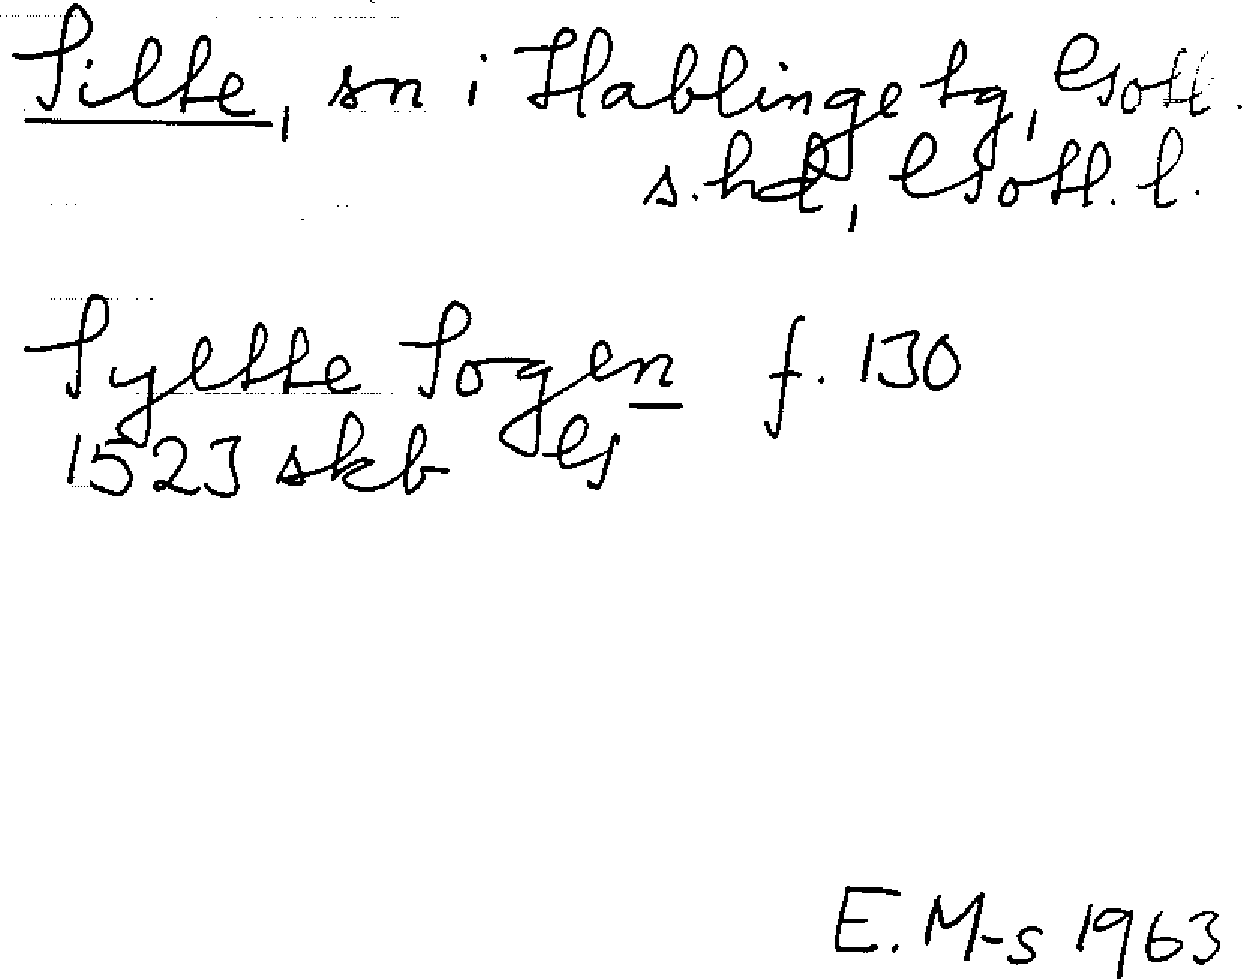 Silte, sn i Hablinge tg, Gotl.
s. hd, Gotl. l.
Syeltte Sogen f. 130
1523 skb G
E. M-s 1963